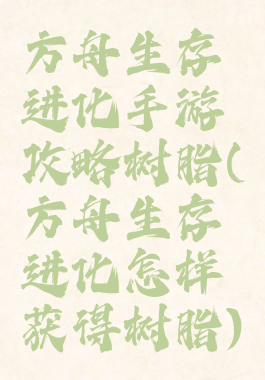 方舟生存
进化手游
攻略树脂(
方舟生存
进化怎样
获得树脂)